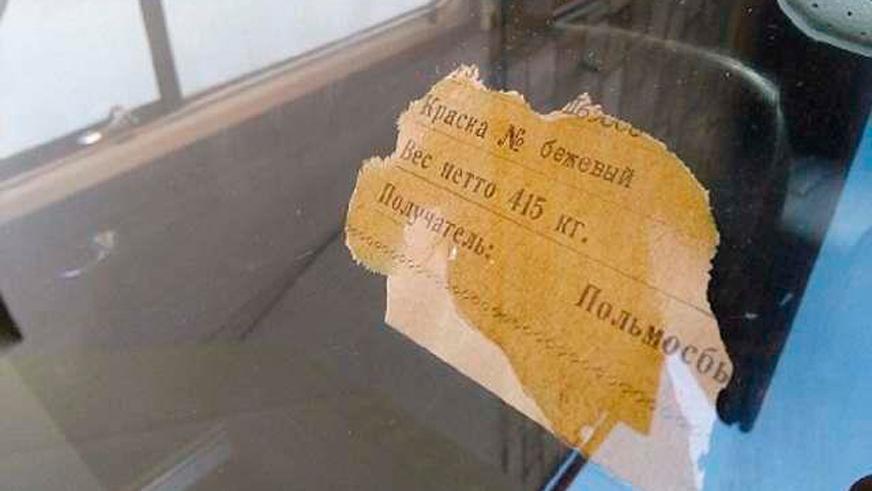 Краска № бежевый
Вес нетто 415 кг.
Получатель:
Польмосбы